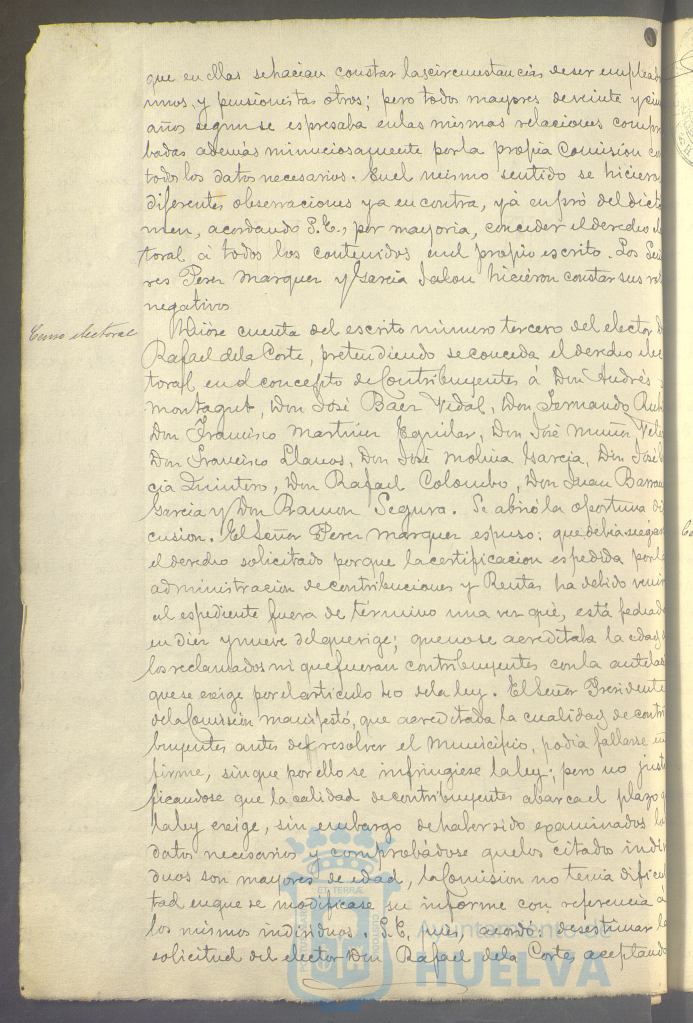 que en ellas se hacian constar las circunstancias de ser emplead
unos, y pensionistas otros; pero todos mayores de veinte y cin
años segun se espresaba en las mismas relaciones compro
badas además minuciosamente por la propia Comision co
todos los datos necesarios. En el mismo sentido se hiciero
diferentes observaciones ya en contra, yá en pró del dictá
men, acordando S.E., por mayoria, conceder el derecho el
toral á todos los contenidos en el propio escrito. Los Seño
res Perez Marquez y Garcia Jalon hicieron constar sus vo
negativos
Censo electoral
Dióse cuenta del escrito número tercero del elector D
Rafael de la Corte, pretendiendo se conceda el derecho elec
toral en el concepto de Contribuyentes á Don Andrés
Montagut, Don José Baez Vidal, Don Fernando Rub
Don Francisco Martinez Eguilar, Don José Muñoz Vele
Don Francisco Llanos, Don José Molina Garcia, Don José
cia Quintero, Don Rafael Colombo, Don Juan Barr
Garcia y Don Ramon Segura. Se abrió la oportuna di
cusion. El Señor Perez Marquez espuso: que debia negar
el derecho solicitado porque la certificacion espedida por la
administracion de contribuciones y Rentas ha debido venir
al espediente fuera de término una vez que, está fechada
en diez y nueve del que rige; que no se acreditaba la edad
los reclamados ni que fueran contribuyentes con la antela
que se exige por el articulo 40 de la ley. El Señor Presidente
de la Comisión manifestó, que acreditada la cualidad de contri
buyentes antes de resolver el Municipio, podia fallarse en
firme, sin que por ello se infringiese la ley; pero no justi
ficandose que la calidad de contribuyentes abarca el plazo q
la ley exige, sin embargo de haber sido examinados lo
datos necesarios y comprobádose que los citado indivi
duos son mayores de edad, la Comision no tenia dificul
tad en que se modificase su informe con referencia á
los mismos individuos. S.E. pues, acordó desestimar la
solicitud del elector Don Rafael de la Corte, aceptando
Ayuntamiento de
HUELVA